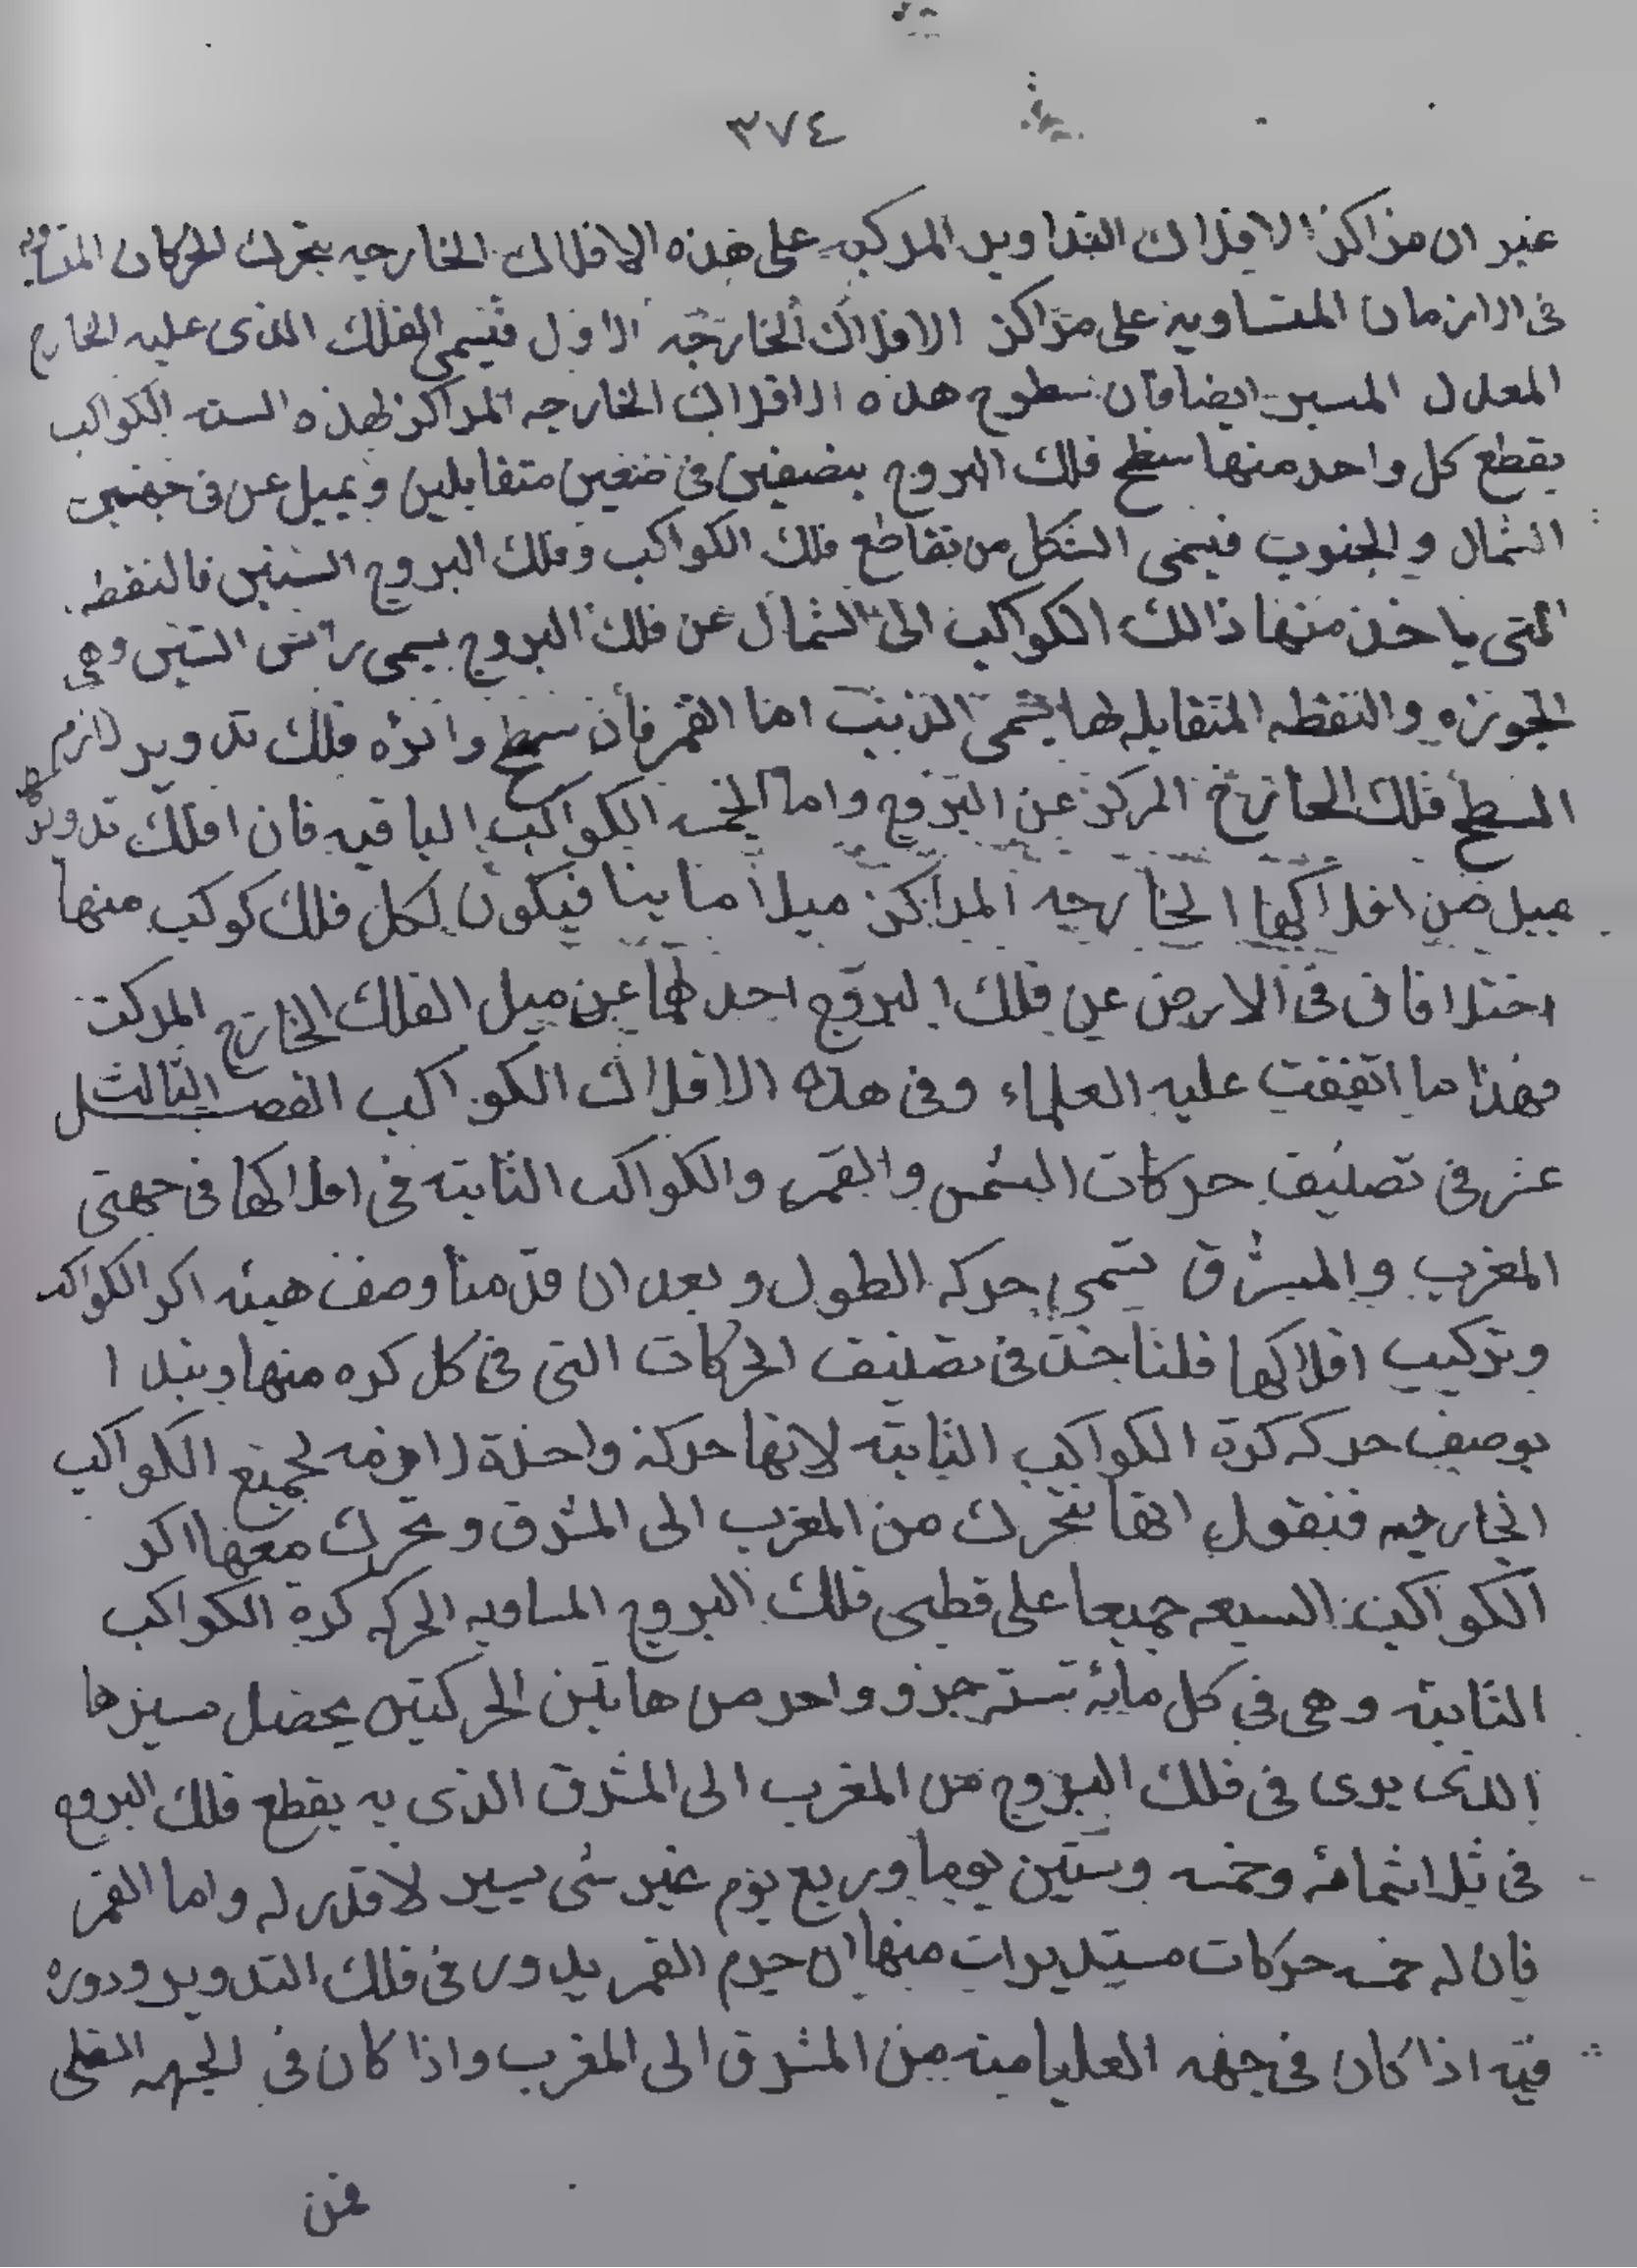 ٣٧٤
غير ان مراكز الافلاك التداوير المركبه على هذه الافلاك الخارجه يتحرك الحركات المتساويه
فى الازمان المتساويه على مراكز الافلاك الخارجه الاول فتسمى الفلك الذى عليه الخارج
المعدل المسير ايضا فان سطوح هذه الافلاك الخارجه المراكز لهذه السته الكواكب
يقطع كل واحد منها سطح فلك البروج بنصفين فى ضعين متقابلين ويميل عن فى جهتين
الشمال والجنوب فيسمى الشكل من تقاطع فلك الكواكب وفلك البروج التنين فالنقطه
التى ياخذ منها ذالك الكواكب الى الشمال عن فلك البروج يسمى راس التنين وهى
الجوزه والنقطه المتقابله لها يسمى الذنب اما القمر فأن سطح دائره فلك تدوير لازم
السطح فلك الخارج المركز عن البروج واما الخمسه الكواكب الباقيه فان افلاك تدويرها
ميل ضن افلاكها الخارجه المراكز ميلا ما بينا فيكون لكل فلك كوكب منها
اختلافان فى الارض عن فلك البروج احدلهما عن ميل الفلك الخارج المركز
فهذا ما اتفقت عليه العلماء وفى هذه الافلاك الكواكب الفصل الثالث
عشر فى تصنيف حركات الشمس والقمر والكواكب الثابته فى افلاكها فى جهتى
المغرب والمشرق يتسمى حركه الطول وبعد ان قدمنا وصف هيئه اكر الكواكب
وتركيب افلاكها فلناخذ فى تصنيف الحركات التى فى كل كره منها ونبدا
بوصف حركه كرة الكواكب الثابته لانها حركة واحدة لازمه لجميع الكواكب
الخارجه فنقول انها تتحرك من المغرب الى المشرق وتحرك معها اكر
الكواكب السبعه جميعا على قطبى فلك البروج المساويه الحركه كرة الكواكب
الثابته وهى فى كل مائة سنة جزو واحد من هاتين الحركتين يحصل مسيرها
الذى يرى فى فلك البروج من المغرب الى المشرق الذى به يقطع فلك البروج
فى ثلاثمائه وخمسه وستين يوما وربع يوم غير شى يسير لا قدر له واما القمر
فان له خمسه حركات مستديرات منها ان جرم القمر يدور فى فلك التدوير ودوره
فيه اذا كان فى جهه العليا منه من المشرق الى المغرب واذا كان فى الجهه السفلى
فمن